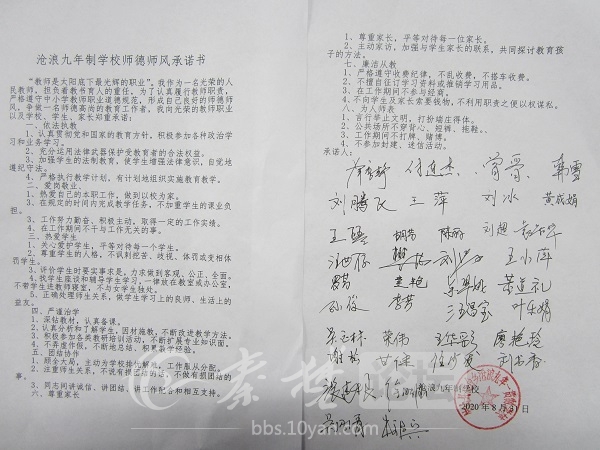 沧浪九年制学校师德师风承诺书
“教师是太阳底下最光辉的职业”,我作为一名光荣的人
民教师,担负着教书育人的重任,为了认真履行教师职责,
严格遵守中小学教师职业道德规范,形成自己良好的师德师
风,争做一名师德高尚的教育工作者,我向光荣的教师职业
以及学校、学生、家长郑重承诺:
一、依法执教
1、认真贯彻党和国家的教育方针,积极参加各种政治学
习和业务学习。
2、充分运用法律武器保护受教育者的合法权益。
3、加强学生的法制教育,使学生增强法律意识,自觉地
遵纪守法。
4、严格执行教学计划,有计划地组织实施教育教学。
二、爱岗敬业、
1、热爱自己的本职工作,做到以校为家。
2、在规定的时间内完成教学任务,不加重学生的课业负
担。
3、工作努力勤奋、积极主动,取得一定的工作实绩。
4、在工作期间不干与工作无关的事。
三、热爱学生
1、关心爱护学生,平等对待每一个学生。
2、尊重学生的人格,不讽刺挖苦、歧视、体罚或变相体
罚学生。
3、评价学生时要实事求是,力求做到客观、公正、全面。
4、找学生座谈和辅导学生学习,一律放在教室或办公室,
不带学生进教师寝室,不与女学生独处。
5、正确处理师生关系,做学生学习上的良师、生活上的
益友。
四、严谨治学
1、深钻教材,认真备课。
2、认真分析和了解学生,因材施教,不断改进教学方法。
3、积极参加各类教研培训活动,不断扩展专业知识面。
4、不弄虚作假,不断地总结、积累教学经验。
五、团结协作
1、顾全大局,主动为学校排忧解难,工作服从分配。
2、注重师生关系,不说有损团结的话,不做有损团结的
事。
3、同志间讲诚信、讲团结、讲工作配合和相互支持。
六、尊重家长
1、尊重家长,平等对待每一位家长。
2、主动家访,加强与学生家长的联系,共同探讨教育孩
子的方法。
七、廉洁从教
1、严格遵守收费纪律,不乱收费,不搭车收费。
2、不擅自订学习资料或推销学习用品。
3、在工作期间不参与经商。
4、不向学生及家长索要钱物,不利用职责之便以权谋私。
八、为人师表
1、言行举止文明,打扮端庄得体。
2、公共场所不穿背心、短裤、拖鞋。
3、工作期间不打牌、赌博。
4、不参加封建、迷信活动。
承诺人:
韩雪
刘腾飞 王萍 刘冰 黄成娟
刘超
王小萍
董道礼
李芳 叶乐娟
荣伟
谢彬
沧浪九年制学校
2020年8月31日
秦楚
bbs.10yan.com